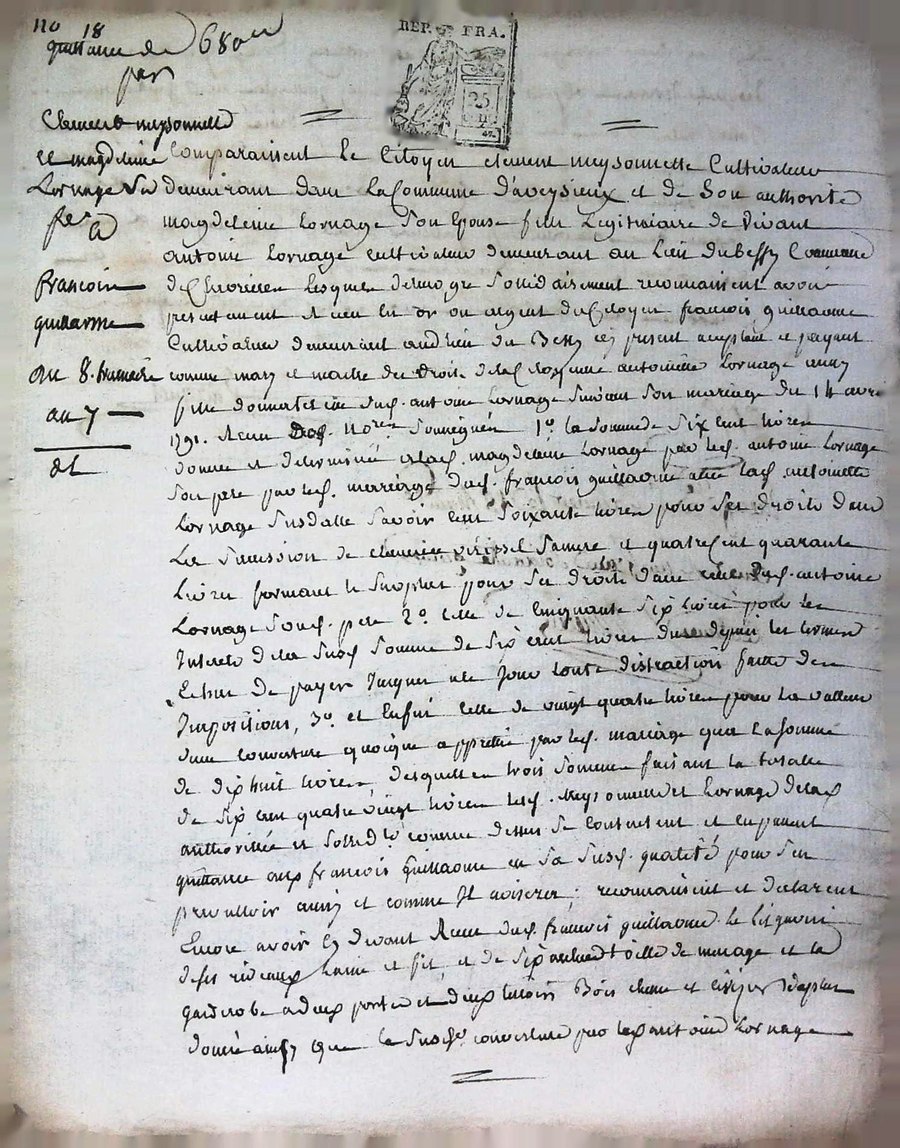 no 18
quittance de 680 ₶
par
REP. FRA.
25
Clement meysonnette
et magdeleine
Lornage sa
fe
a
francois
guillaume
du 8. frimaire
an 7
Comparaissent Le Citoyen clement meysonnette Cultivateur
demeurant dans La Commune d'aveysieux et de Son authorité
magdeleine Lornage Son Epouse fille Legitimaire de vivant
antoine Lornage cultivateur demeurant au Lieu du bessy Commune
de lesquels solidairement reconnaissent avoir
presentement Receu en or ou argent du Citoyen françois guillaume
Cultivateur demeurant audit lieu du Bessy icy present acceptant et payant
comme mary et maitre des droits de la Citoyenne antoinette Lornage aussy
fille donnataire dud. antoine Lornage Suivant Son mariage du 14 avril
1791. Receu no.re Soussigné 1.º la Somme de Six cent livres
donnée et determinée a lad. magdeleine Lornage par led. antoine Lornage
Son pere par led. mariage dud. françois guillaume avec lad. antoinette
Lornage Susdatté Savoir cent soixante livres pour Ses droits dans
La Succession de Sa mere et quatre cent quarante
Livres formant le Surplus pour Ses droits dans celle dud. antoine
Lornage Sond. pere 2.º celle de Cinquante Six livres pour les
Interets de la Susd. Somme de Six cent livres dus depuis les termes
Echus de payer Jusques a ce Jour toute distraction faitte des
Impositions, 3.º et Enfin celle de vingt quatre livres pour La valleur
d'une couverture quoique apprétiée par led. mariage que La Somme
de dix huit livres, desquelles trois Sommes faisant la totalle
de Six cent quatre vingt livres lesd. Meysonnette et Lornage de lad.
authorisée et Sollid.té comme dessus Se contentent et en passent
quittance aud. françois guillaume en Sa Susd. qualité pour S'en
prevalloir ainsy et comme Il avisera; reconnaissent et declarent
Encore avoir cy devant Receu dud. françois guillaume le lit garni
de ses rideaux Laine et fil, et de Six aulnes toille de menage et la
garderobe a deux portes et deux tiroirs Bois chene et cerisier
donné ainsy que la Susd. couverture par led. antoine Lornage